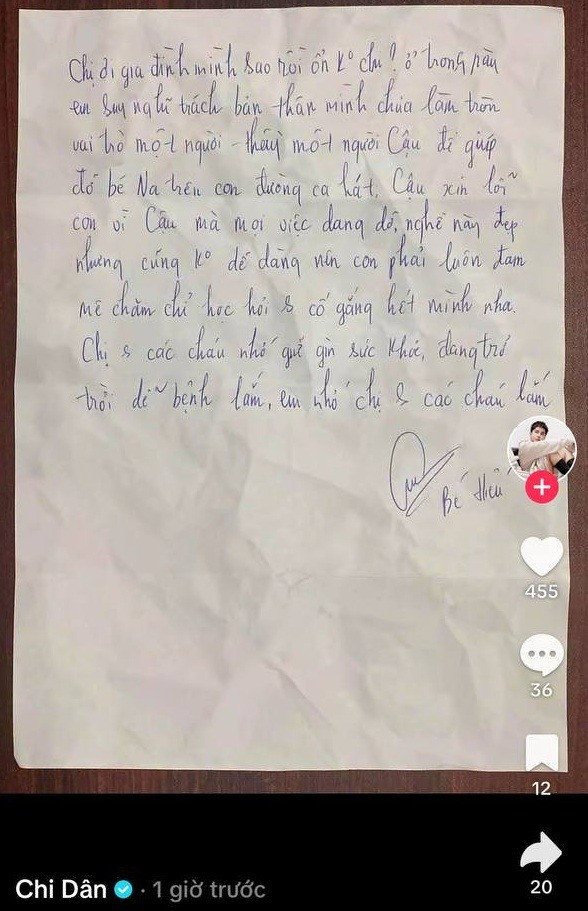 Chị ơi gia đình mình sao rồi ổn ko chị? ở trong này
em suy nghĩ trách bản thân mình chưa làm tròn
vai trò một người thầy một người Cậu để giúp
đỡ bé Na trên con đường ca hát. Cậu xin lỗi
con vì Cậu mà mọi việc dang dở, nghề này đẹp
nhưng cũng ko dễ dàng nên con phải luôn đam
mê chăm chỉ học hỏi & cố gắng hết mình nha.
Chị & các cháu nhớ giữ gìn sức khỏe, đang trở
trời dễ bệnh lắm, em nhớ chị & các cháu lắm
Bé Hiếu
455
36
12
20
Chi Dân · 1 giờ trước